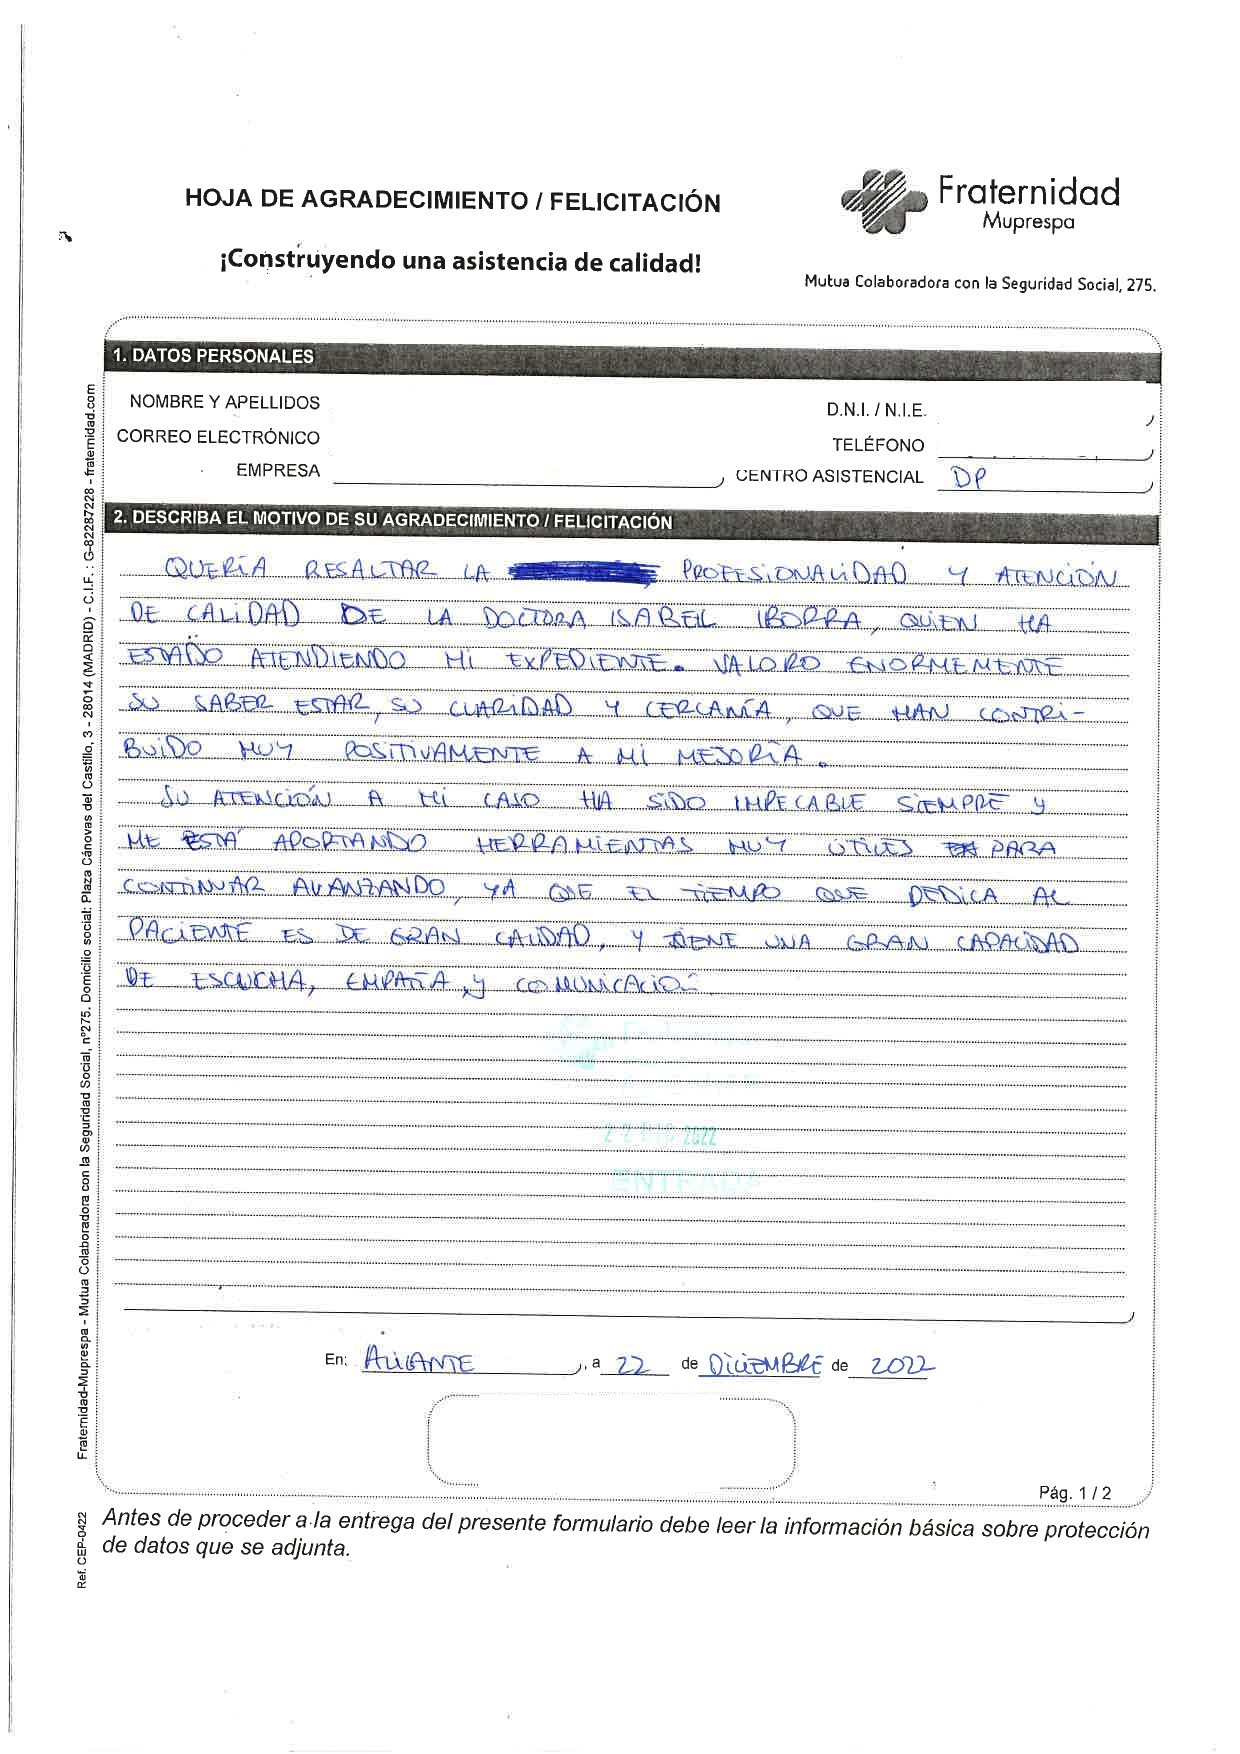 HOJA DE AGRADECIMIENTO / FELICITACIÓN
¡Construyendo una asistencia de calidad!
Fraternidad
Muprespa
Mutua Colaboradora con la Seguridad Social, 275.
1. DATOS PERSONALES
NOMBRE Y APELLIDOS
D.N.I. / N.I.E.
CORREO ELECTRÓNICO
TELÉFONO
EMPRESA
CENTRO ASISTENCIAL DP
2. DESCRIBA EL MOTIVO DE SU AGRADECIMIENTO / FELICITACIÓN
QUERÍA RESALTAR LA PROFESIONALIDAD Y ATENCIÓN
DE CALIDAD DE LA DOCTORA ISABEL IBORRA, QUIEN HA
ESTADO ATENDIENDO MI EXPEDIENTE. VALORO ENORMEMENTE
SU SABER ESTAR, SU CLARIDAD Y CERCANÍA, QUE HAN CONTRI-
BUIDO MUY POSITIVAMENTE A MI MEJORÍA.
SU ATENCIÓN A MI CASO HA SIDO IMPECABLE SIEMPRE Y
ME ESTÁ APORTANDO HERRAMIENTAS MUY ÚTILES PARA
CONTINUAR AVANZANDO, YA QUE EL TIEMPO QUE DEDICA AL
PACIENTE ES DE GRAN CALIDAD, Y TIENE UNA GRAN CAPACIDAD
DE ESCUCHA, EMPATÍA Y COMUNICACIÓN
22 DIC 2022
ENTRADA
En: ALICANTE, a 22 de DICIEMBRE de 2022
Pág. 1 / 2
Antes de proceder a la entrega del presente formulario debe leer la información básica sobre protección
de datos que se adjunta.
Fraternidad-Muprespa - Mutua Colaboradora con la Seguridad Social, nº275. Domicilio social: Plaza Cánovas del Castillo, 3 - 28014 (MADRID) - C.I.F. : G-82287228 - fraternidad.com
Ref. CEP-0422